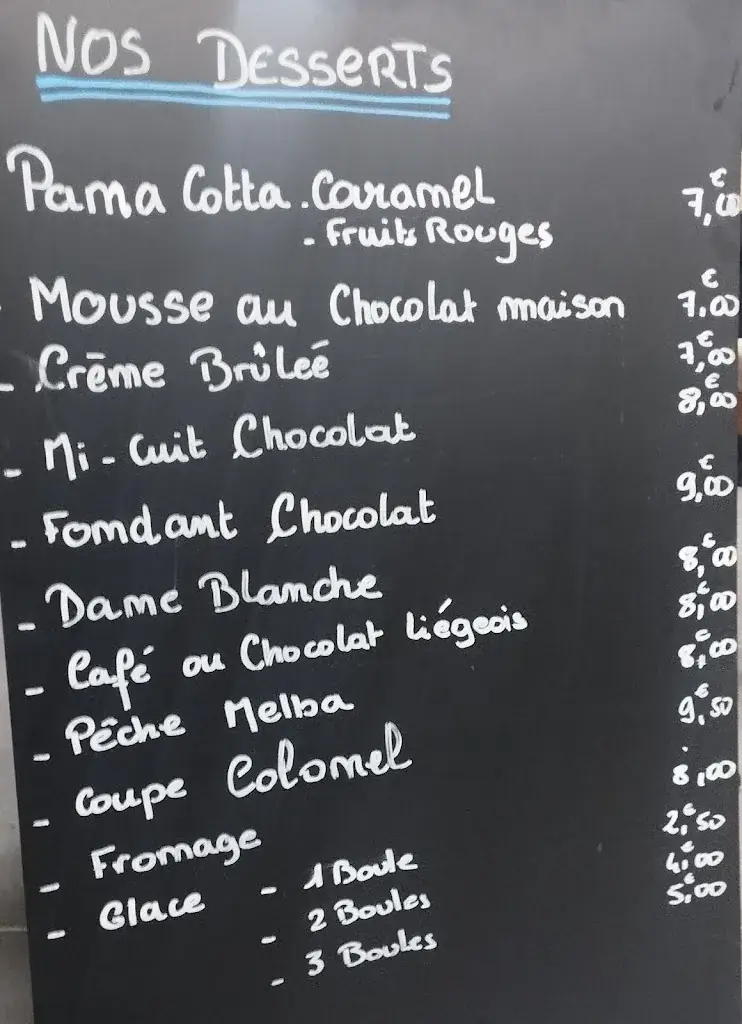 NOS DESSERTS
Pama Cotta . Caramel 7,00 €
- Fruits Rouges
- Mousse au Chocolat maison 7,00 €
- Crême Brûleé 7,00 €
- Mi-Cuit Chocolat 8,00 €
- Fomdant Chocolat 9,00 €
- Dame Blanche 8,00 €
- Café ou Chocolat liégeois 8,00 €
- Pêche Melba 8,00 €
- Coupe Colomel 9,50 €
- Fromage 8,00
- Glace - 1 Boule 2,50 €
- 2 Boules 4,00 €
- 3 Boules 5,00 €